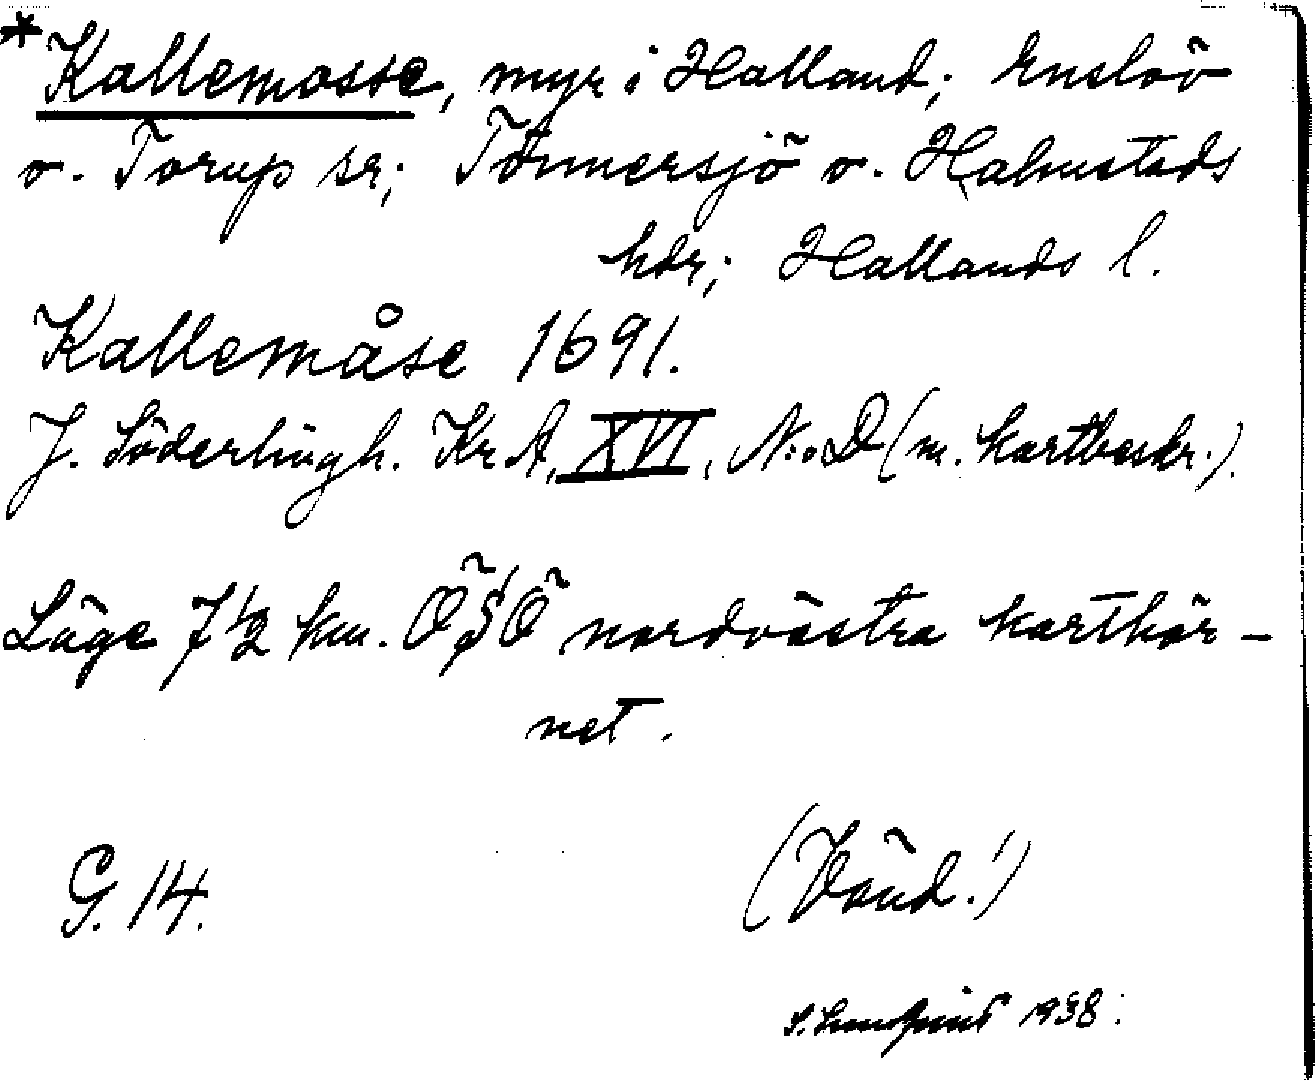 *Kallemosse, myr i Halland; Enslöv
o. Torup sr; Tönnersjö o. Halmstads
hdr; Hallands l.
Kallemåse 1691.
J. Söderlingh. Kr A, XVI, N:o D (m. kartbeskr.).
Läge 7 1/2 km. ÖSÖ nordvästra karthör-
net.
G. 14.
(Vänd!)
S. Lundquist 1938.